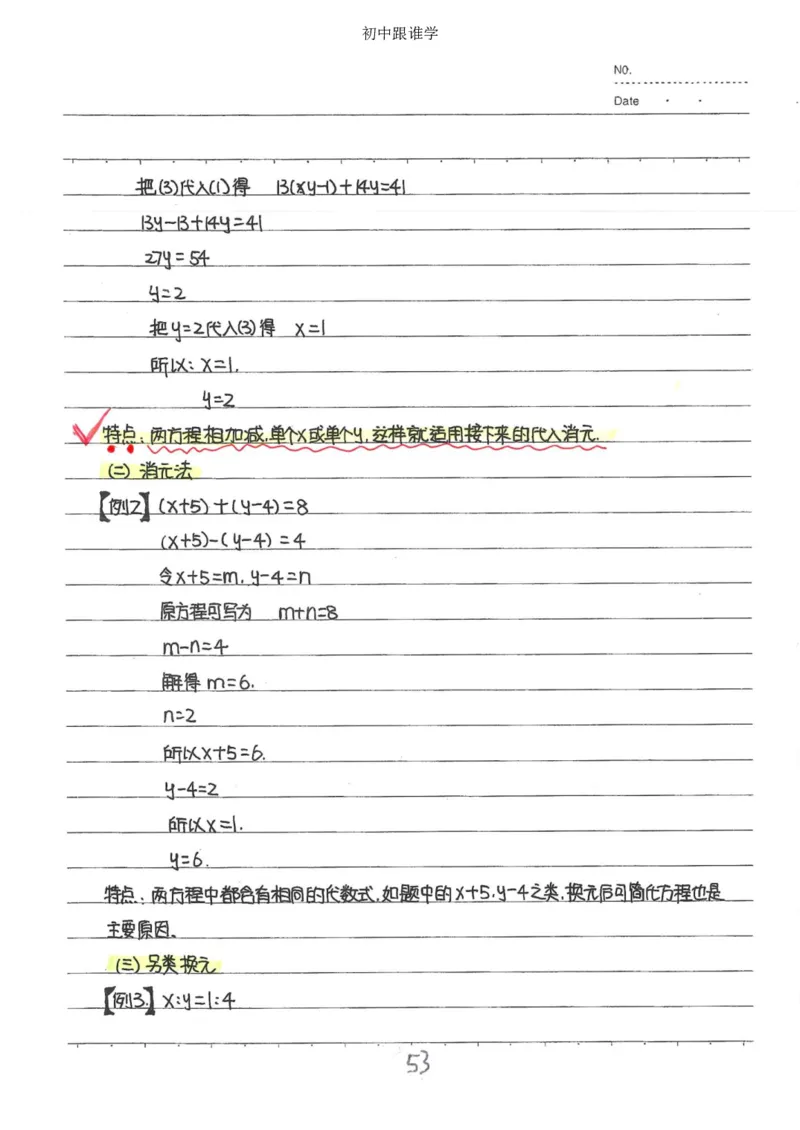 初中跟谁学
NO.
Date
把(3)代入(1)得 13(xy-1)+14y=41
13y-13+14y=41
27y=54
y=2
把y=2代入(3)得 x=1
所以:x=1.
y=2
特点:两方程相加减,单个x或单个y,这样就适用接下来的代入消元.
(二) 消元法
【例2】(x+5)+(y-4)=8
(x+5)-(y-4)=4
令x+5=m,y-4=n
原方程可写为 m+n=8
m-n=4
解得m=6.
n=2
所以x+5=6.
y-4=2
所以x=1.
y=6.
特点:两方程中都含有相同的代数式,如题中的x+5,y-4之类,换元后可简化方程也是
主要原因、
(三)另类换元
【例3.】x:y=1:4
53